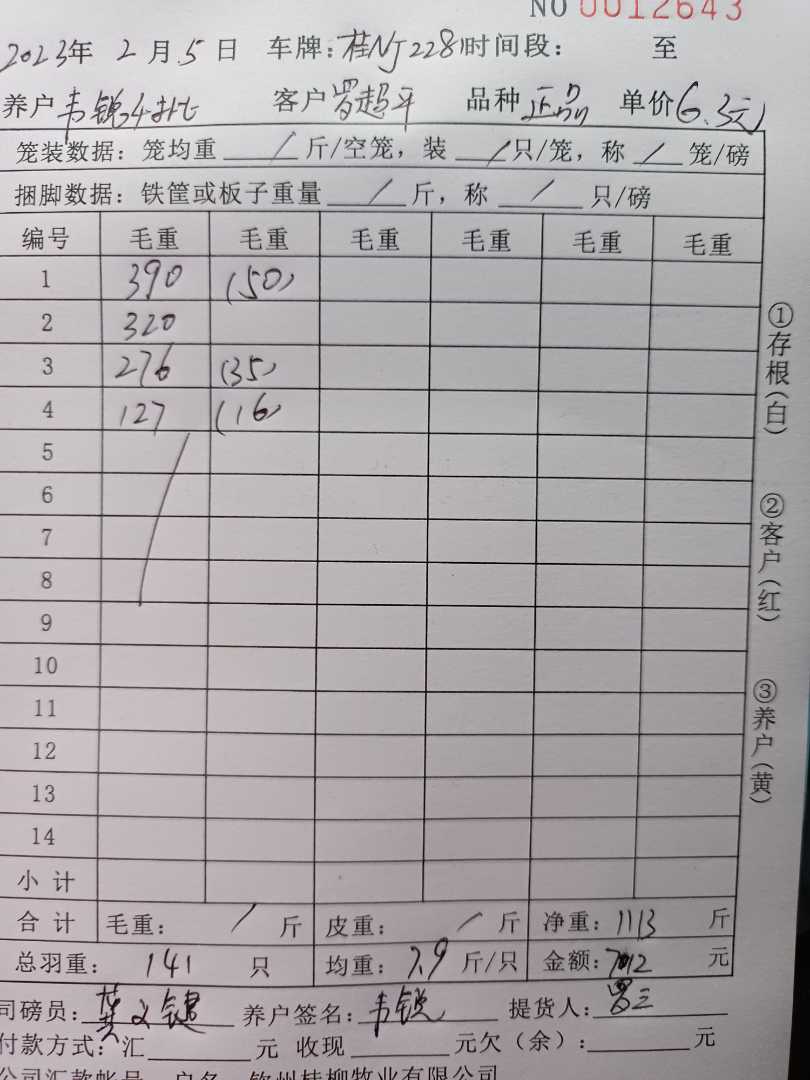 NO 0012643
2023年 2月5日 车牌:桂NJ2281时间段: 至
养户韦锐 客户罗超平 品种正品 单价6.3元
笼装数据: 笼均重 / 斤/空笼, 装 / 只/笼, 称 / 笼/磅
捆脚数据: 铁筐或板子重量 / 斤, 称 / 只/磅
编号 毛重 毛重 毛重 毛重 毛重 毛重
1 390 (50)
2 320
3 276 (35)
4 127 (16)
5
6
7
8
9
10
11
12
13
14
小计
合计 毛重: / 斤 皮重: / 斤 净重: 1113 斤
总羽重: 141 只 均重: 7.9 斤/只 金额: 7012 元
司磅员: 龚文键 养户签名: 韦锐 提货人:
付款方式: 汇 元 收现 元欠(余): 元
公司汇款帐号 户名 钦州桂柳牧业有限公司
①存根(白)
②客户(红)
③养户(黄)